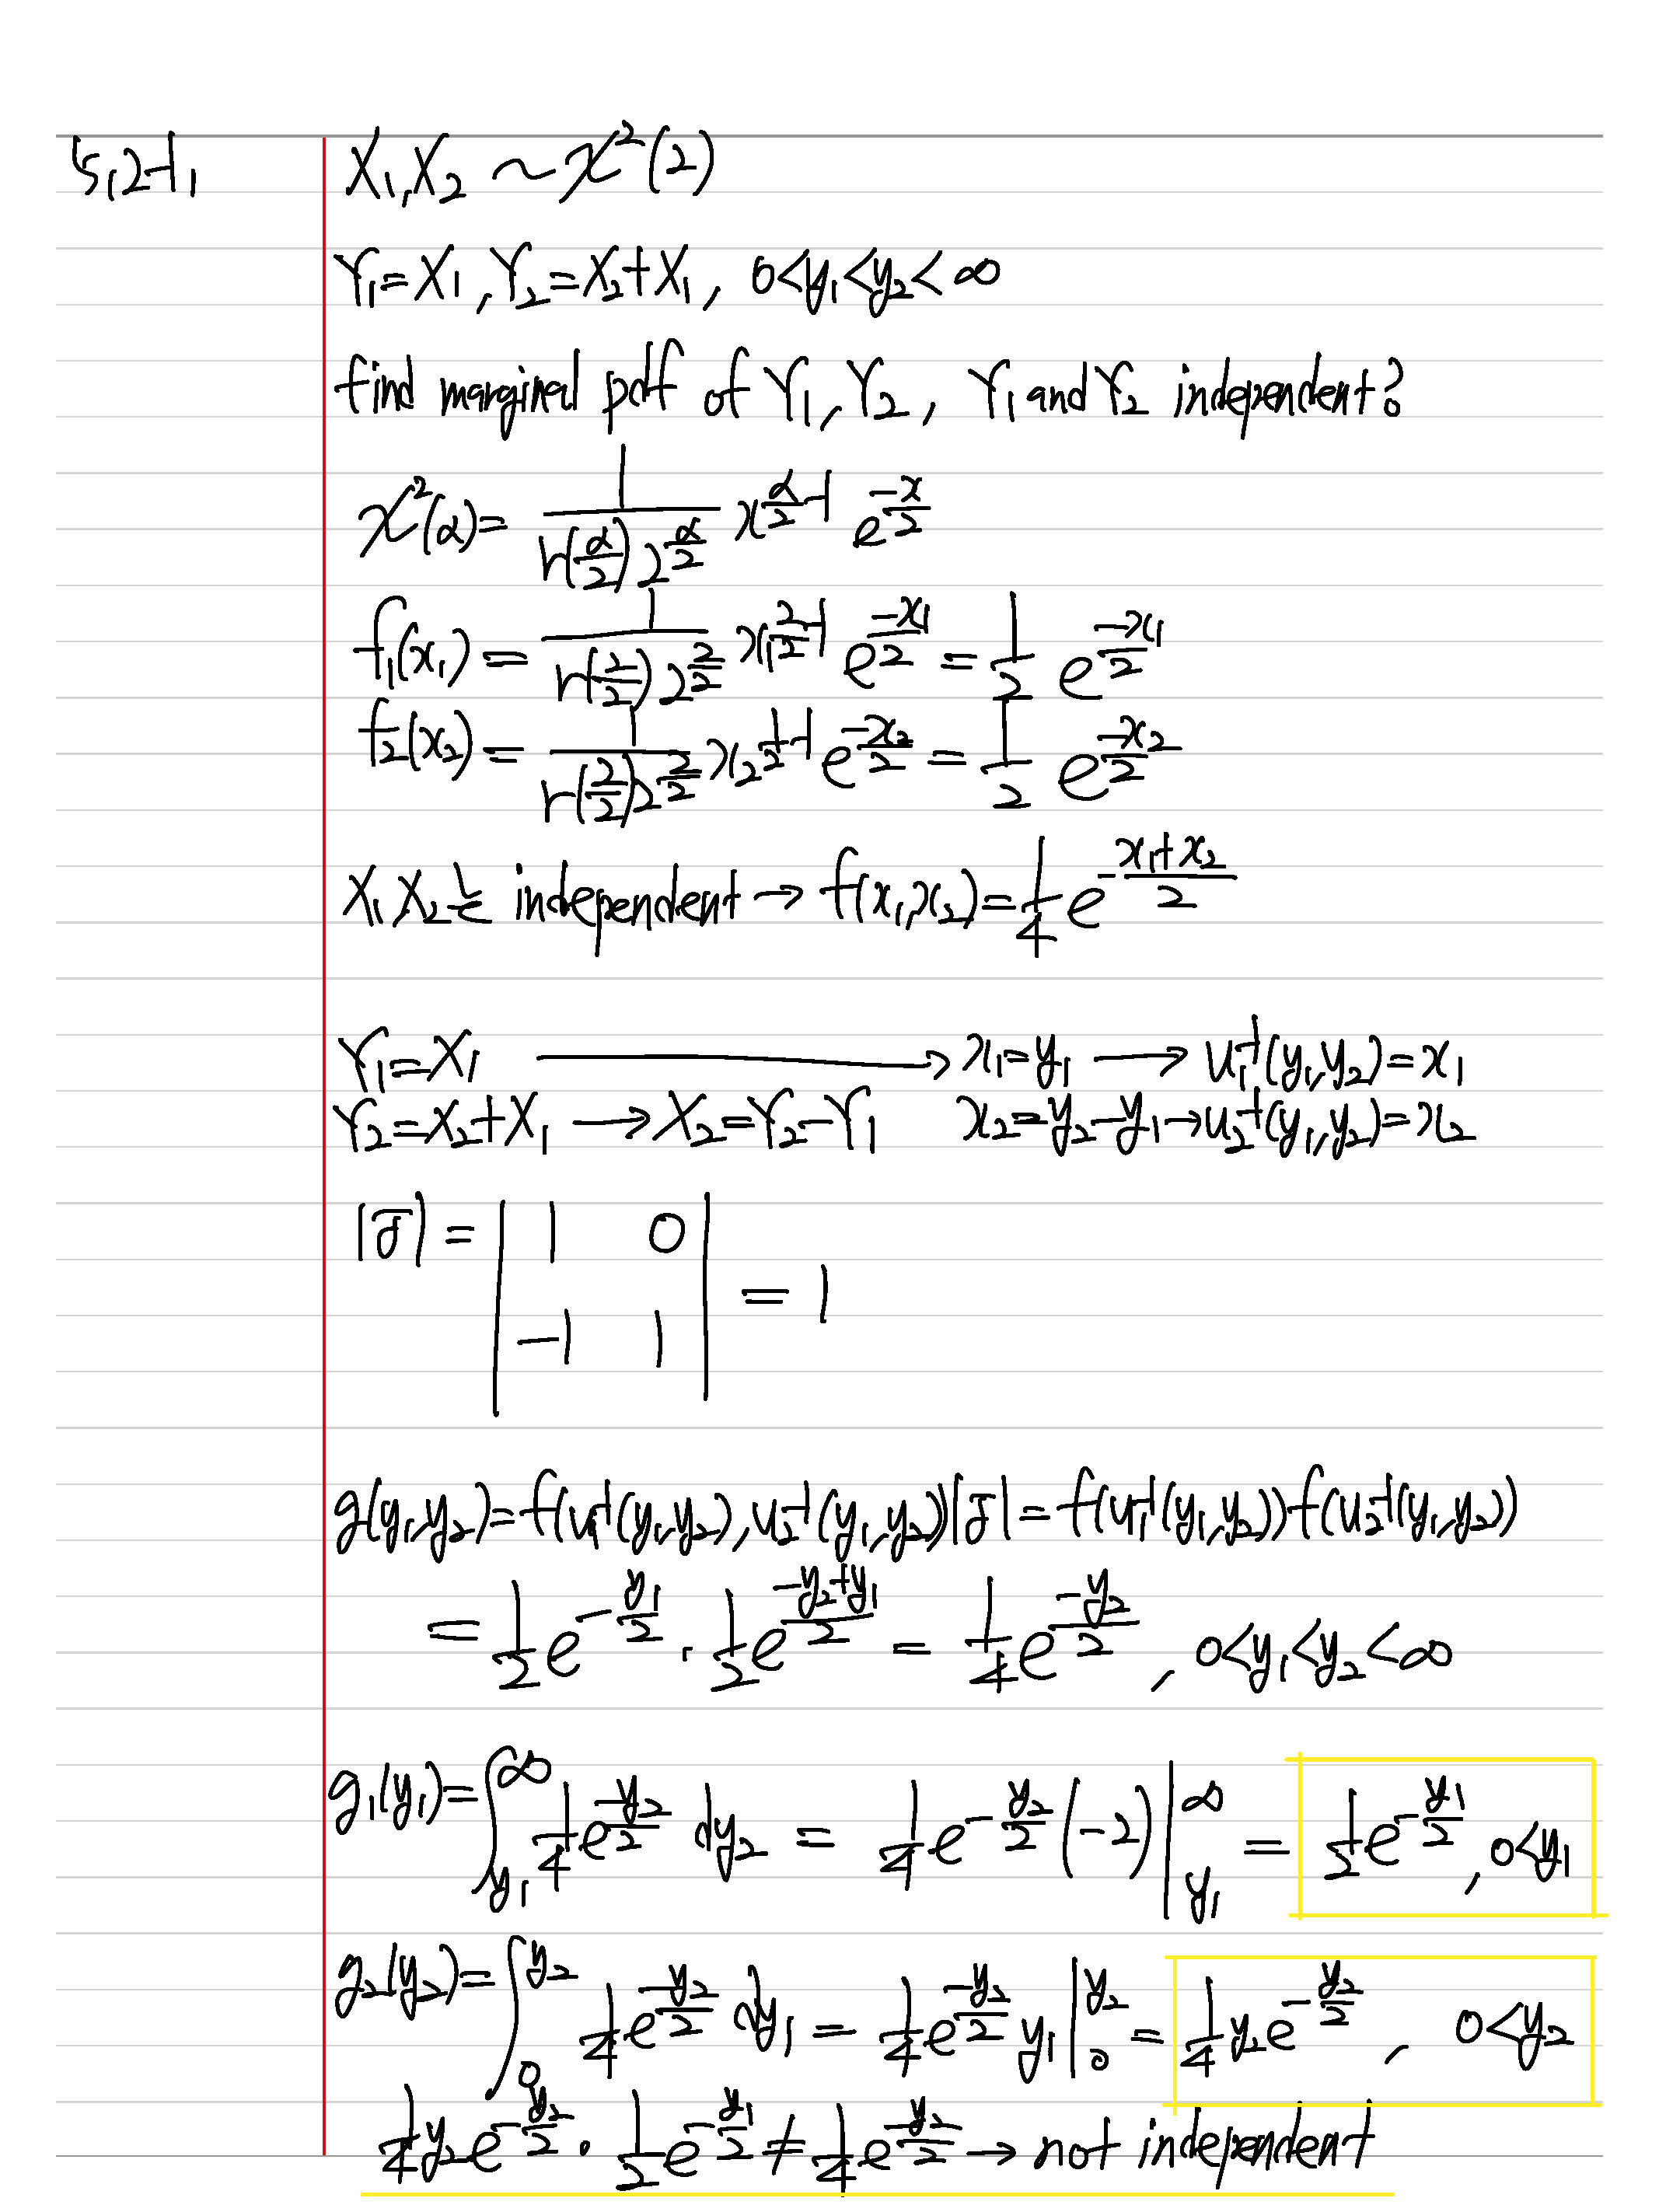 5.2-1.
X₁, X₂ ~ χ²(2)
Y₁ = X₁, Y₂ = X₂ + X₁, 0 < y₁ < y₂ < ∞
find marginal pdf of Y₁, Y₂, Y₁ and Y₂ independent?
χ²(α) = 1/(r(α/2) 2^(α/2)) x^(α/2 - 1) e^(-x/2)
f₁(x₁) = 1/(r(2/2) 2^(2/2)) x₁^(2/2 - 1) e^(-x₁/2) = 1/2 e^(-x₁/2)
f₂(x₂) = 1/(r(2/2) 2^(2/2)) x₂^(1/2 - 1) e^(-x₂/2) = 1/2 e^(-x₂/2)
X₁ X₂는 independent → f(x₁, x₂) = 1/4 e^(-(x₁ + x₂)/2)
Y₁ = X₁ → x₁ = y₁ → u₁⁻¹(y₁, y₂) = x₁
Y₂ = X₂ + X₁ → X₂ = Y₂ - Y₁ x₂ = y₂ - y₁ → u₂⁻¹(y₁, y₂) = x₂
|J| = | 1 0 |
= 1
| -1 1 |
g(y₁, y₂) = f(u₁⁻¹(y₁, y₂), u₂⁻¹(y₁, y₂)) |J| = f(u₁⁻¹(y₁, y₂)) f(u₂⁻¹(y₁, y₂))
= 1/2 e^(-y₁/2) · 1/2 e^((-y₂ + y₁)/2) = 1/4 e^(-y₂/2), 0 < y₁ < y₂ < ∞
g₁(y₁) = ∫_{y₁}^{∞} 1/4 e^(-y₂/2) dy₂ = 1/4 e^(-y₂/2) (-2) |_{y₁}^{∞} = 1/2 e^(-y₁/2), 0 < y₁
g₂(y₂) = ∫_{0}^{y₂} 1/4 e^(-y₂/2) dy₁ = 1/4 e^(-y₂/2) y₁ |_{0}^{y₂} = 1/4 y₂ e^(-y₂/2), 0 < y₂
1/4 y₂ e^(-y₂/2) · 1/2 e^(-y₁/2) ≠ 1/4 e^(-y₂/2) → not independent